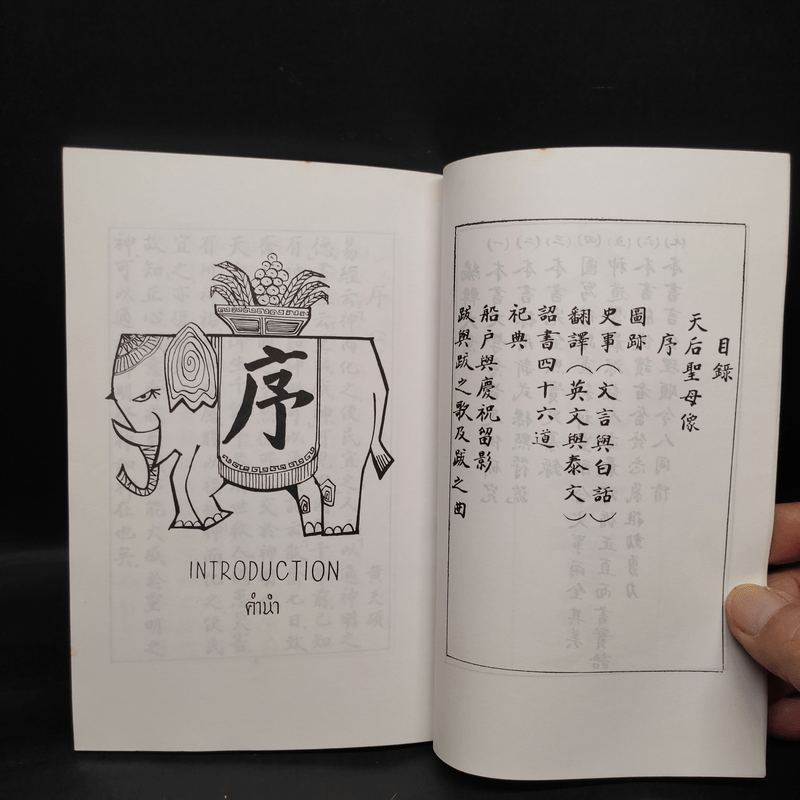 目錄
天后聖母像
序
圖跡
史事（文言與白話）
翻譯（英文與泰文）
祀典
詔書四十六道
船戶與慶祝留影
跋與跋之歌及跋之曲
序
INTRODUCTION
คำนำ